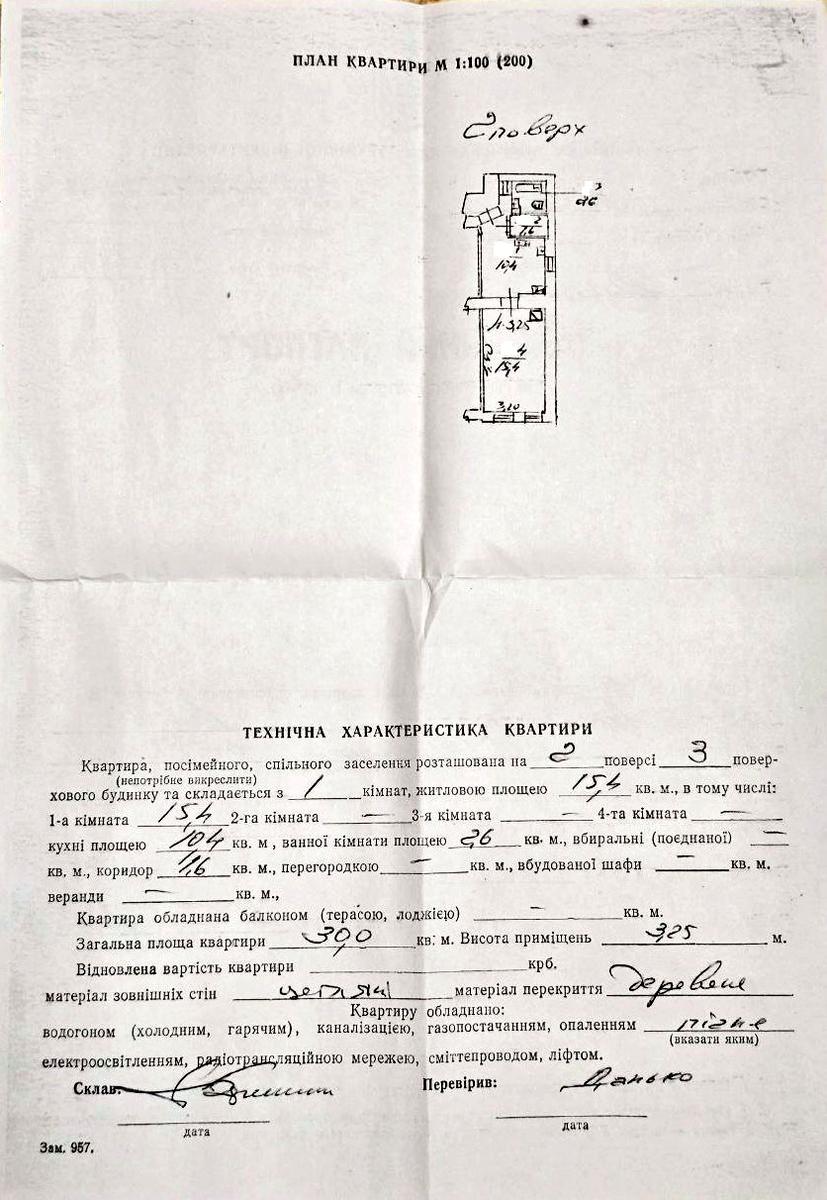 ПЛАН КВАРТИРИ М 1:100 (200)
2 поверх
3
2,6
2
1,6
1
10,4
h-3,25
4
15,4
3,20
ТЕХНІЧНА ХАРАКТЕРИСТИКА КВАРТИРИ
Квартира, посімейного, спільного заселення розташована на 2 поверсі 3 повер-
(непотрібне викреслити)
хового будинку та складається з 1 кімнат, житловою площею 15,4 кв. м., в тому числі:
1-а кімната 15,4 2-га кімната — 3-я кімната — 4-та кімната —
кухні площею 10,4 кв. м , ванної кімнати площею 2,6 кв. м., вбиральні (поєднаної) —
кв. м., коридор 1,6 кв. м., перегородкою — кв. м., вбудованої шафи — кв. м.
веранди — кв. м.,
Квартира обладнана балконом (терасою, лоджією) — кв. м.
Загальна площа квартири 30,0 кв. м. Висота приміщень 3,25 м.
Відновлена вартість квартири крб.
матеріал зовнішніх стін цегляні матеріал перекриття деревяне
Квартиру обладнано:
водогоном (холодним, гарячим), каналізацією, газопостачанням, опаленням пічне
(вказати яким)
електроосвітленням, радіотрансляційною мережею, сміттєпроводом, ліфтом.
Склав: Перевірив: Данько
дата дата
Зам. 957.